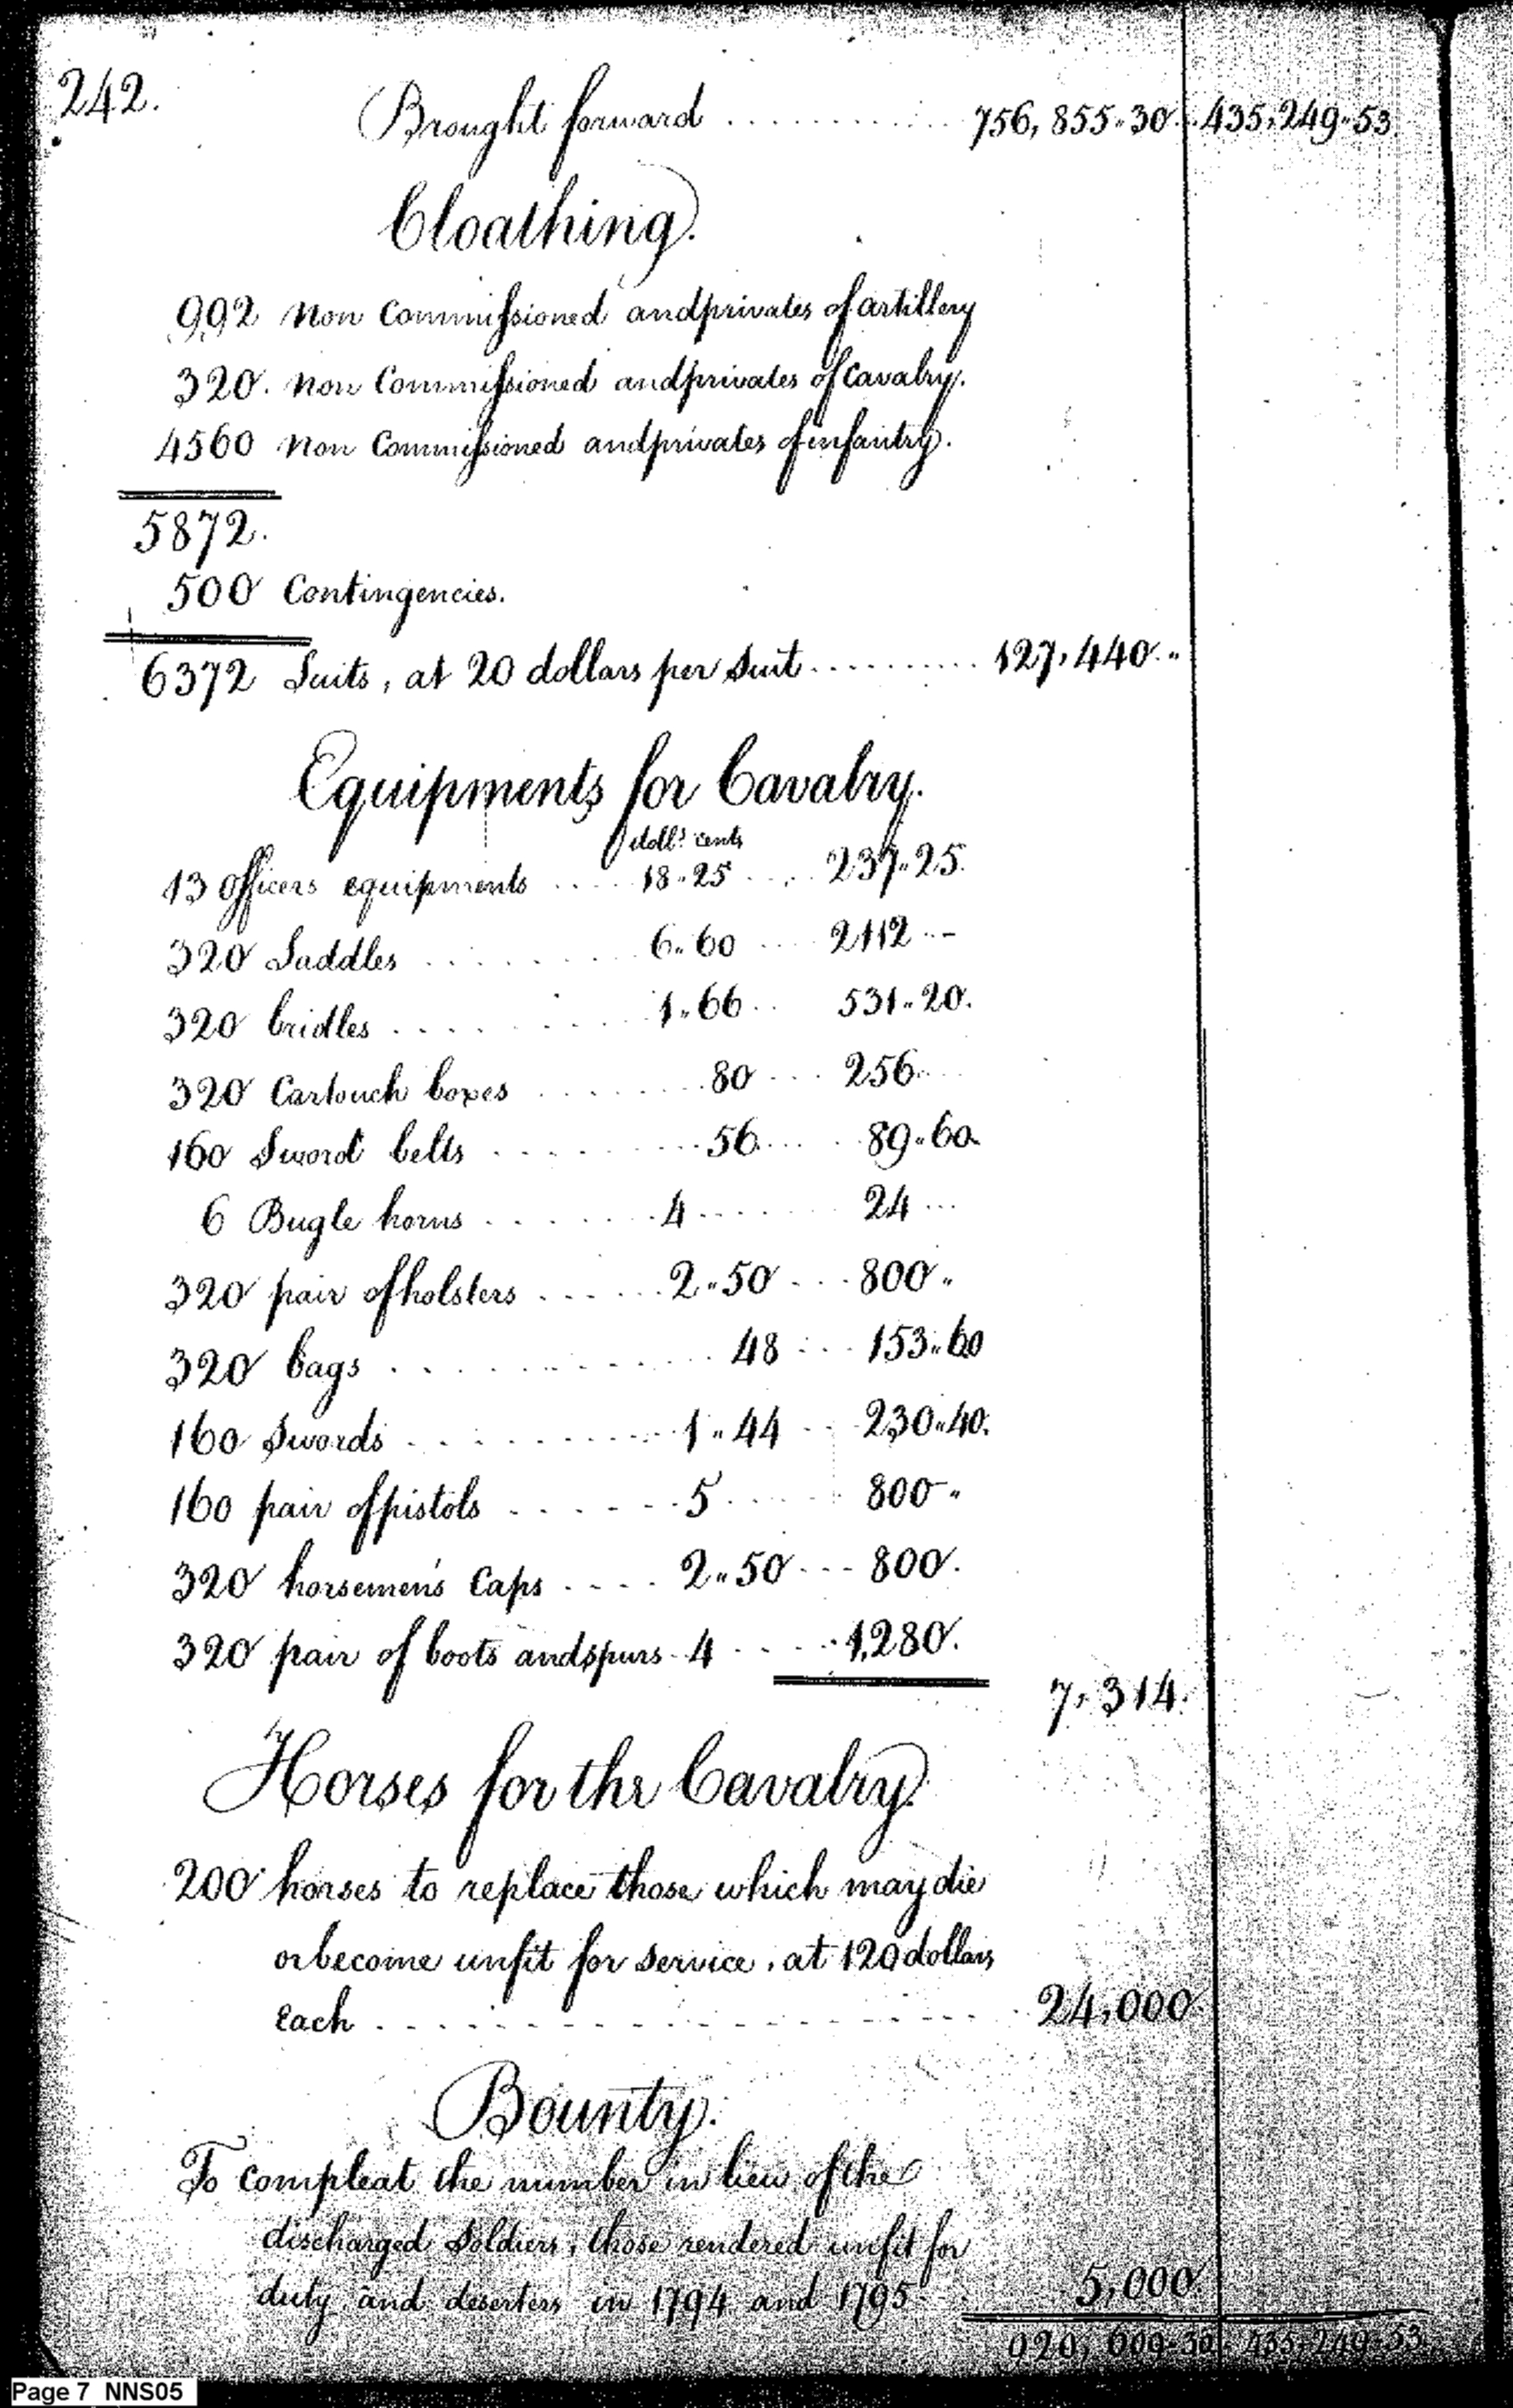 242.
Brought forward ........... 756,855.30 .. 435,249.53
Cloathing.
992 Non Commissioned and privates of artillery
320. Non Commissioned and privates of Cavalry.
4560 Non Commissioned and privates of infantry.
5872.
500 Contingencies.
6372 Suits, at 20 dollars per Suit .......... 127,440..
Equipments for Cavalry.
dolls. cents
13 officers equipments .... 18..25 .... 237..25.
320 Saddles ......... 6..60 .... 2112..-
320 bridles ......... 1..66 .. 531..20.
320 Cartouch boxes ....... 80 ... 256....
160 Sword belts ........ 56 .... 89..60.
6 Bugle horns ....... 4 ....... 24 ...
320 pair of holsters ...... 2..50 ... 800..
320 bags ............ 48 ... 153..60
160 Swords .......... 1..44 ... 230..40.
160 pair of pistols ...... 5 ...... 800..
320 horsemen's Caps .... 2..50 --- 800.
320 pair of boots and spurs . 4 ..... 1,280.
7,314.
Horses for the Cavalry.
200 horses to replace those which may die
or become unfit for service, at 120 dollars
Each .................. 24,000
Bounty.
To compleat the number in lieu of the
discharged Soldiers, those rendered unfit for
duty and deserters in 1794 and 1795. 5,000
920,609.30 435,249.53
Page 7 NNS05